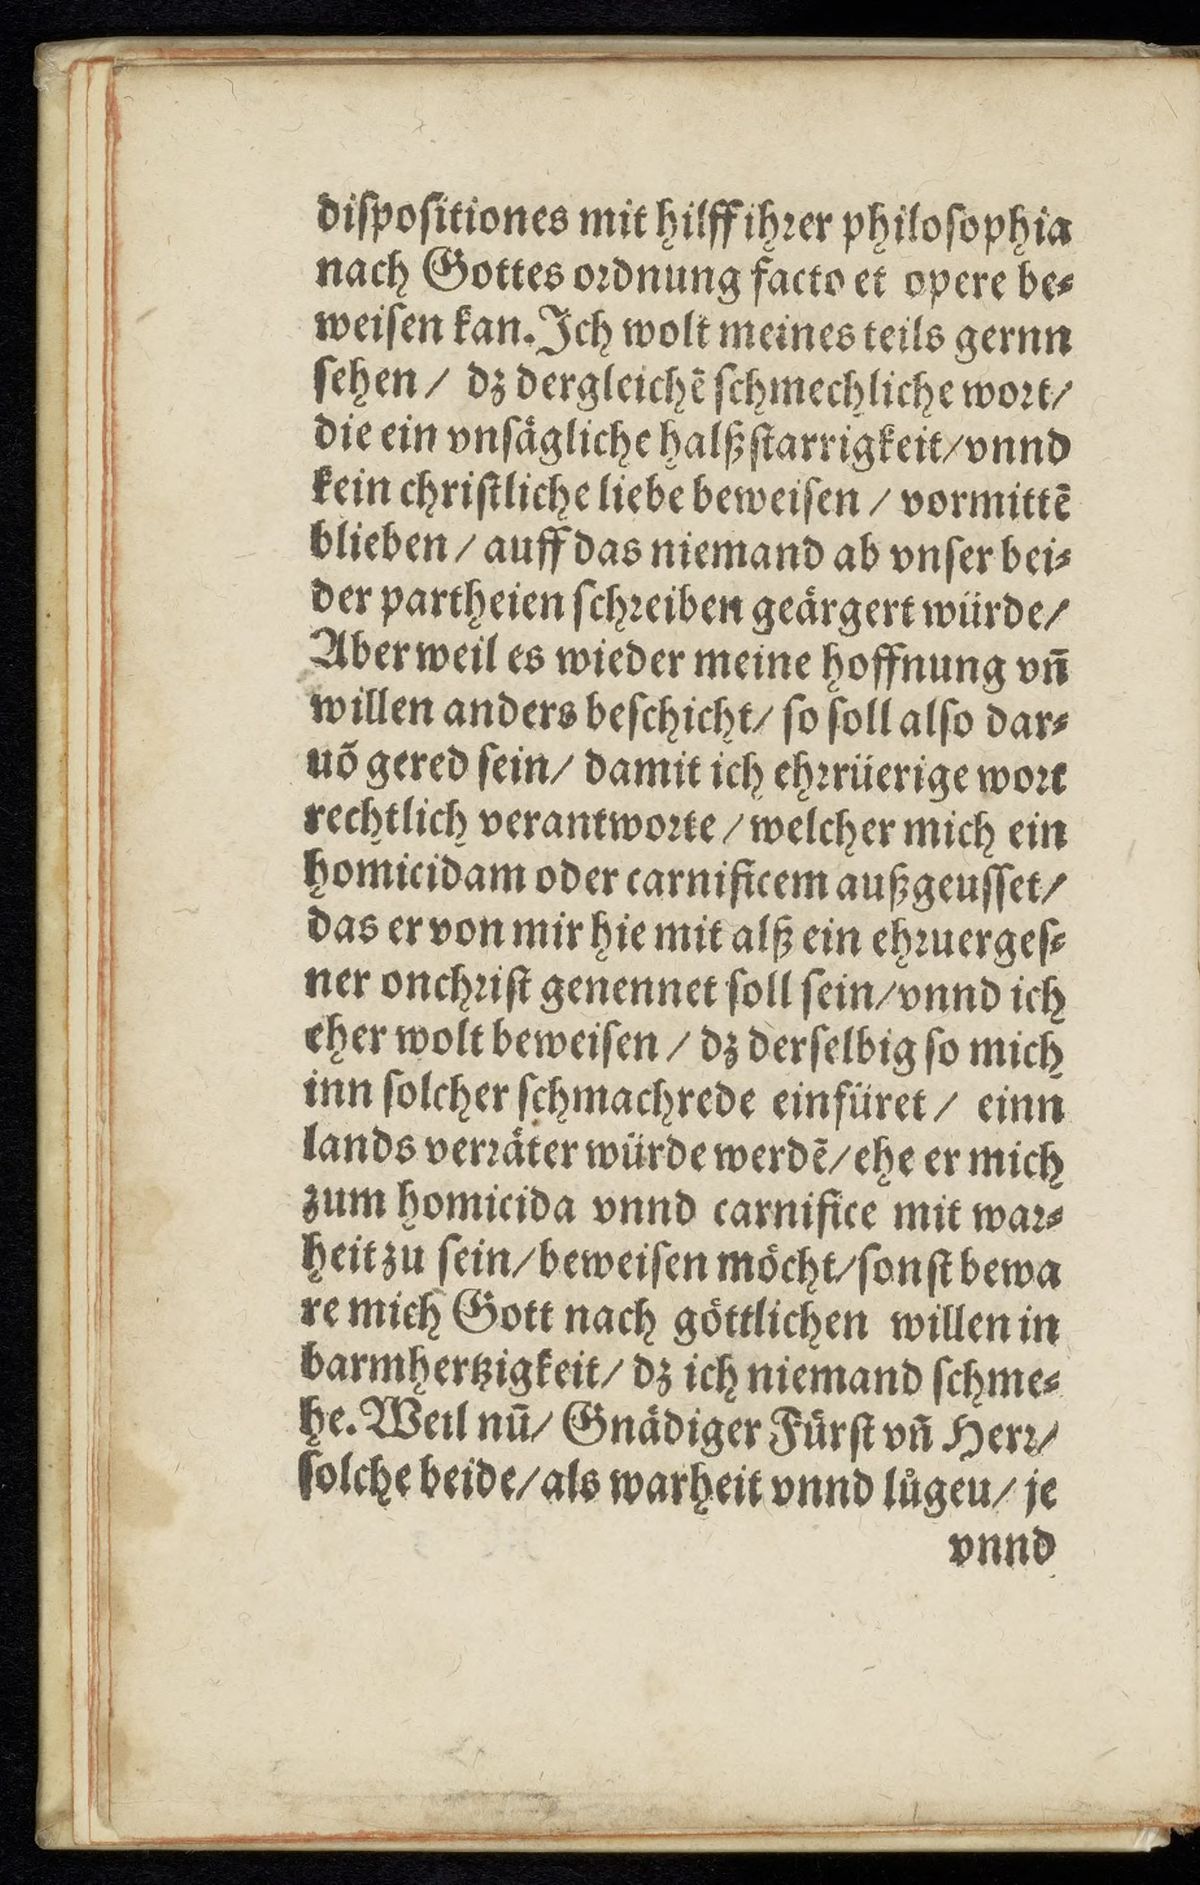 dispositiones mit hilff ihrer philosophia
nach Gottes ordnung facto et opere be⸗
weisen kan. Ich wolt meines teils gernn
sehen / dz dergleichẽ schmechliche wort/
die ein vnsägliche halßstarrigkeit/vnnd
kein christliche liebe beweisen / vormittẽ
blieben / auff das niemand ab vnser bei⸗
der partheien schreiben geärgert würde/
Aber weil es wieder meine hoffnung vñ
willen anders beschicht/ so soll also dar⸗
uõ gered sein/ damit ich ehrrüerige wort
rechtlich verantworte / welcher mich ein
homicidam oder carnificem außgeusset/
das er von mir hie mit alß ein ehruerges⸗
ner onchrist genennet soll sein/vnnd ich
eher wolt beweisen / dz derselbig so mich
inn solcher schmachrede einfüret / einn
lands verräter würde werdẽ/ehe er mich
zum homicida vnnd carnifice mit war⸗
heit zu sein/beweisen möcht/sonst bewa
re mich Gott nach göttlichen willen in
barmhertzigkeit/ dz ich niemand schme⸗
he. Weil nũ/ Gnädiger Fürst vñ Herr/
solche beide/als warheit vnnd lůgeu/ je
vnnd